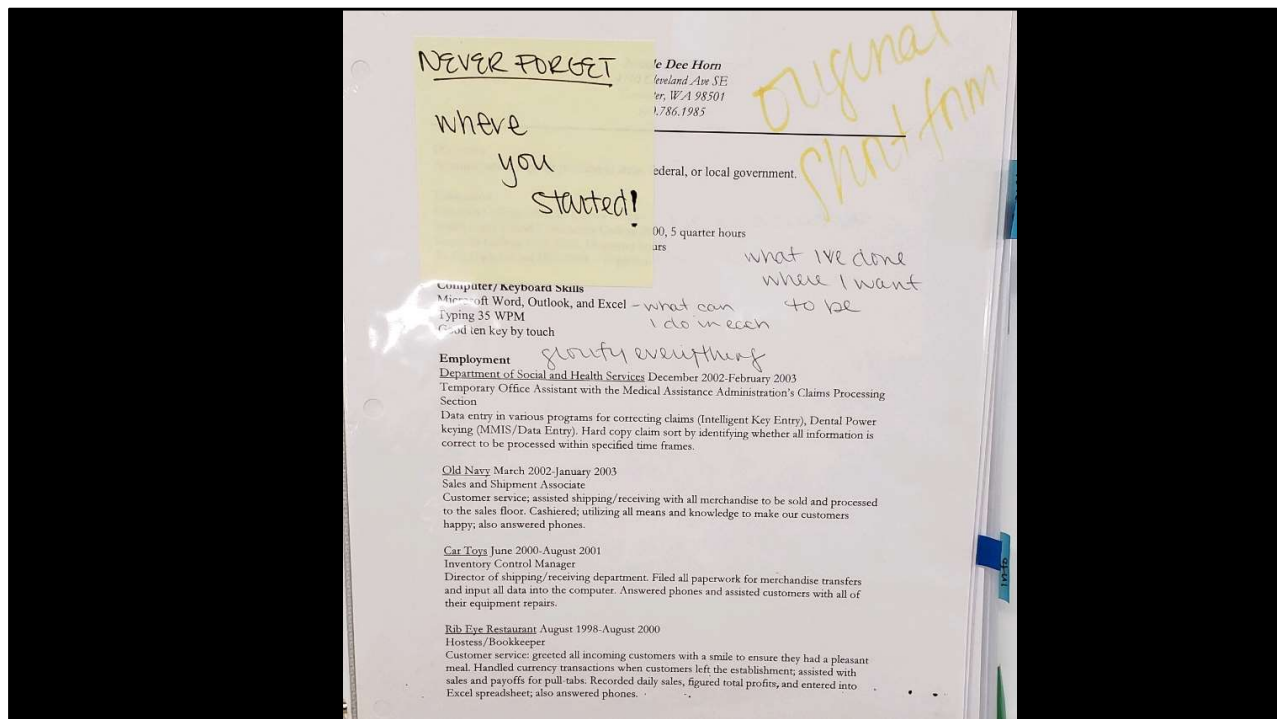 NEVER FORGET
where
you
started!
original
short form
e Dee Horn
leveland Ave SE
er, WA 98501
.786.1985
ederal, or local government.
00, 5 quarter hours
urs
what I've done
where I want
to be
Computer/Keyboard Skills
Microsoft Word, Outlook, and Excel - what can
I do in each
Typing 35 WPM
Good ten key by touch
Employment glorify everything
Department of Social and Health Services December 2002-February 2003
Temporary Office Assistant with the Medical Assistance Administration's Claims Processing
Section
Data entry in various programs for correcting claims (Intelligent Key Entry), Dental Power
keying (MMIS/Data Entry). Hard copy claim sort by identifying whether all information is
correct to be processed within specified time frames.
Old Navy March 2002-January 2003
Sales and Shipment Associate
Customer service; assisted shipping/receiving with all merchandise to be sold and processed
to the sales floor. Cashiered; utilizing all means and knowledge to make our customers
happy; also answered phones.
Car Toys June 2000-August 2001
Inventory Control Manager
Director of shipping/receiving department. Filed all paperwork for merchandise transfers
and input all data into the computer. Answered phones and assisted customers with all of
their equipment repairs.
Rib Eye Restaurant August 1998-August 2000
Hostess/Bookkeeper
Customer service: greeted all incoming customers with a smile to ensure they had a pleasant
meal. Handled currency transactions when customers left the establishment; assisted with
sales and payoffs for pull-tabs. Recorded daily sales, figured total profits, and entered into
Excel spreadsheet; also answered phones.